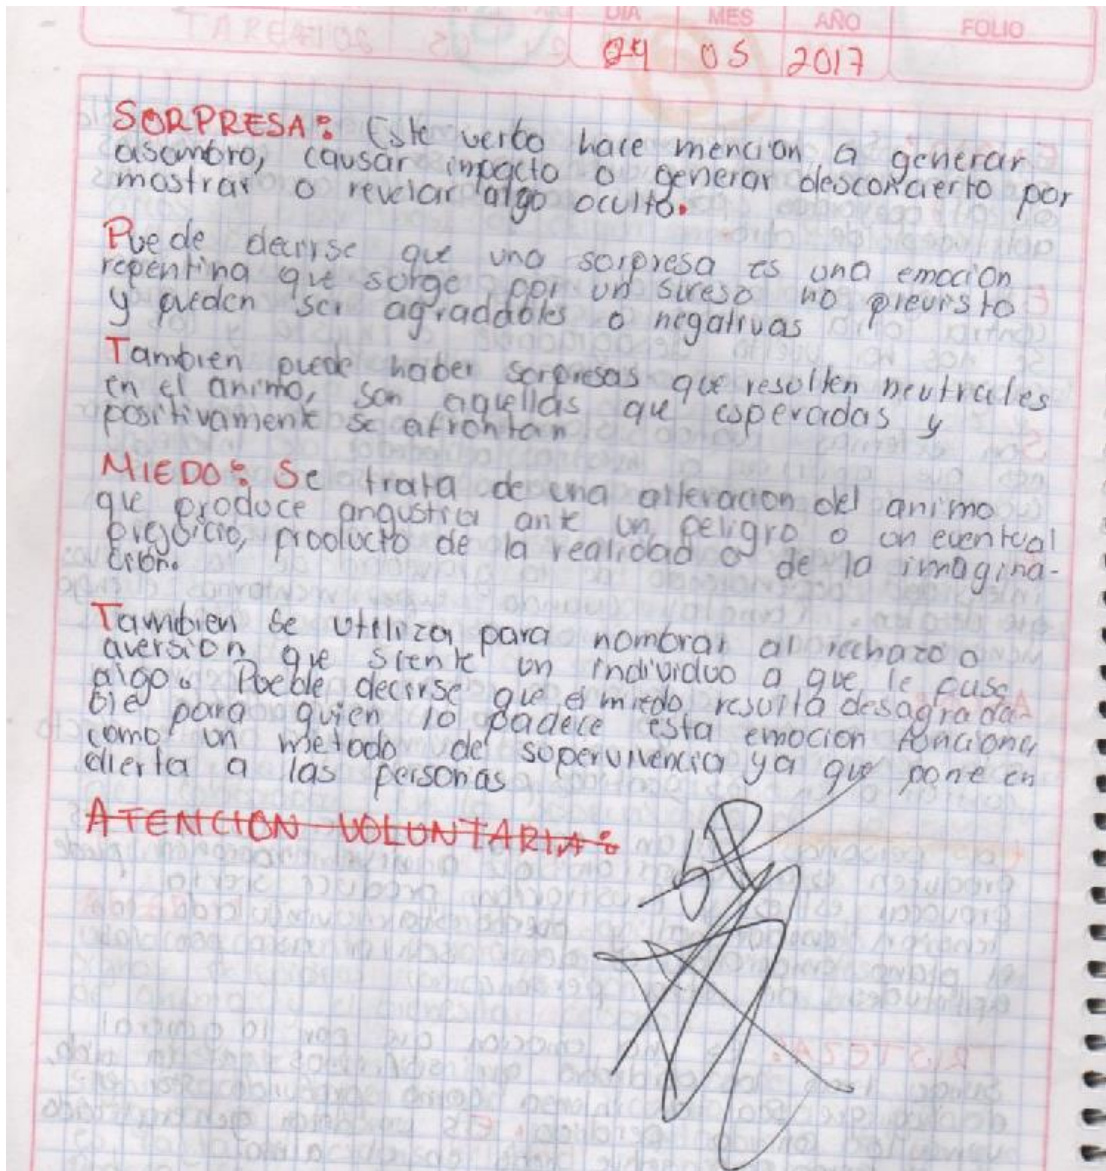 DIA MES AÑO FOLIO
04 05 2017
SORPRESA: Este verbo hace mención a generar
asombro, causar impacto o generar desconcierto por
mostrar o revelar algo oculto.
Puede decirse que una sorpresa es una emoción
repentina que surge por un suceso no previsto
y pueden ser agradables o negativas
Tambien puede haber sorpresas que resulten neutrales
en el animo, son aquellas que esperadas y
positivamente se afrontan
MIEDO: Se trata de una alteracion del animo
que produce angustia ante un peligro o un eventual
prejuicio, producto de la realidad o de la imagina-
ción.
Tambien se utiliza para nombrar al rechazo o
aversión que siente un individuo a que le pase
algo. Puede decirse que el miedo resulta desagrada-
ble para quien lo padece esta emoción funciona
como un metodo de supervivencia ya que pone en
alerta a las personas
ATENCION VOLUNTARIA: